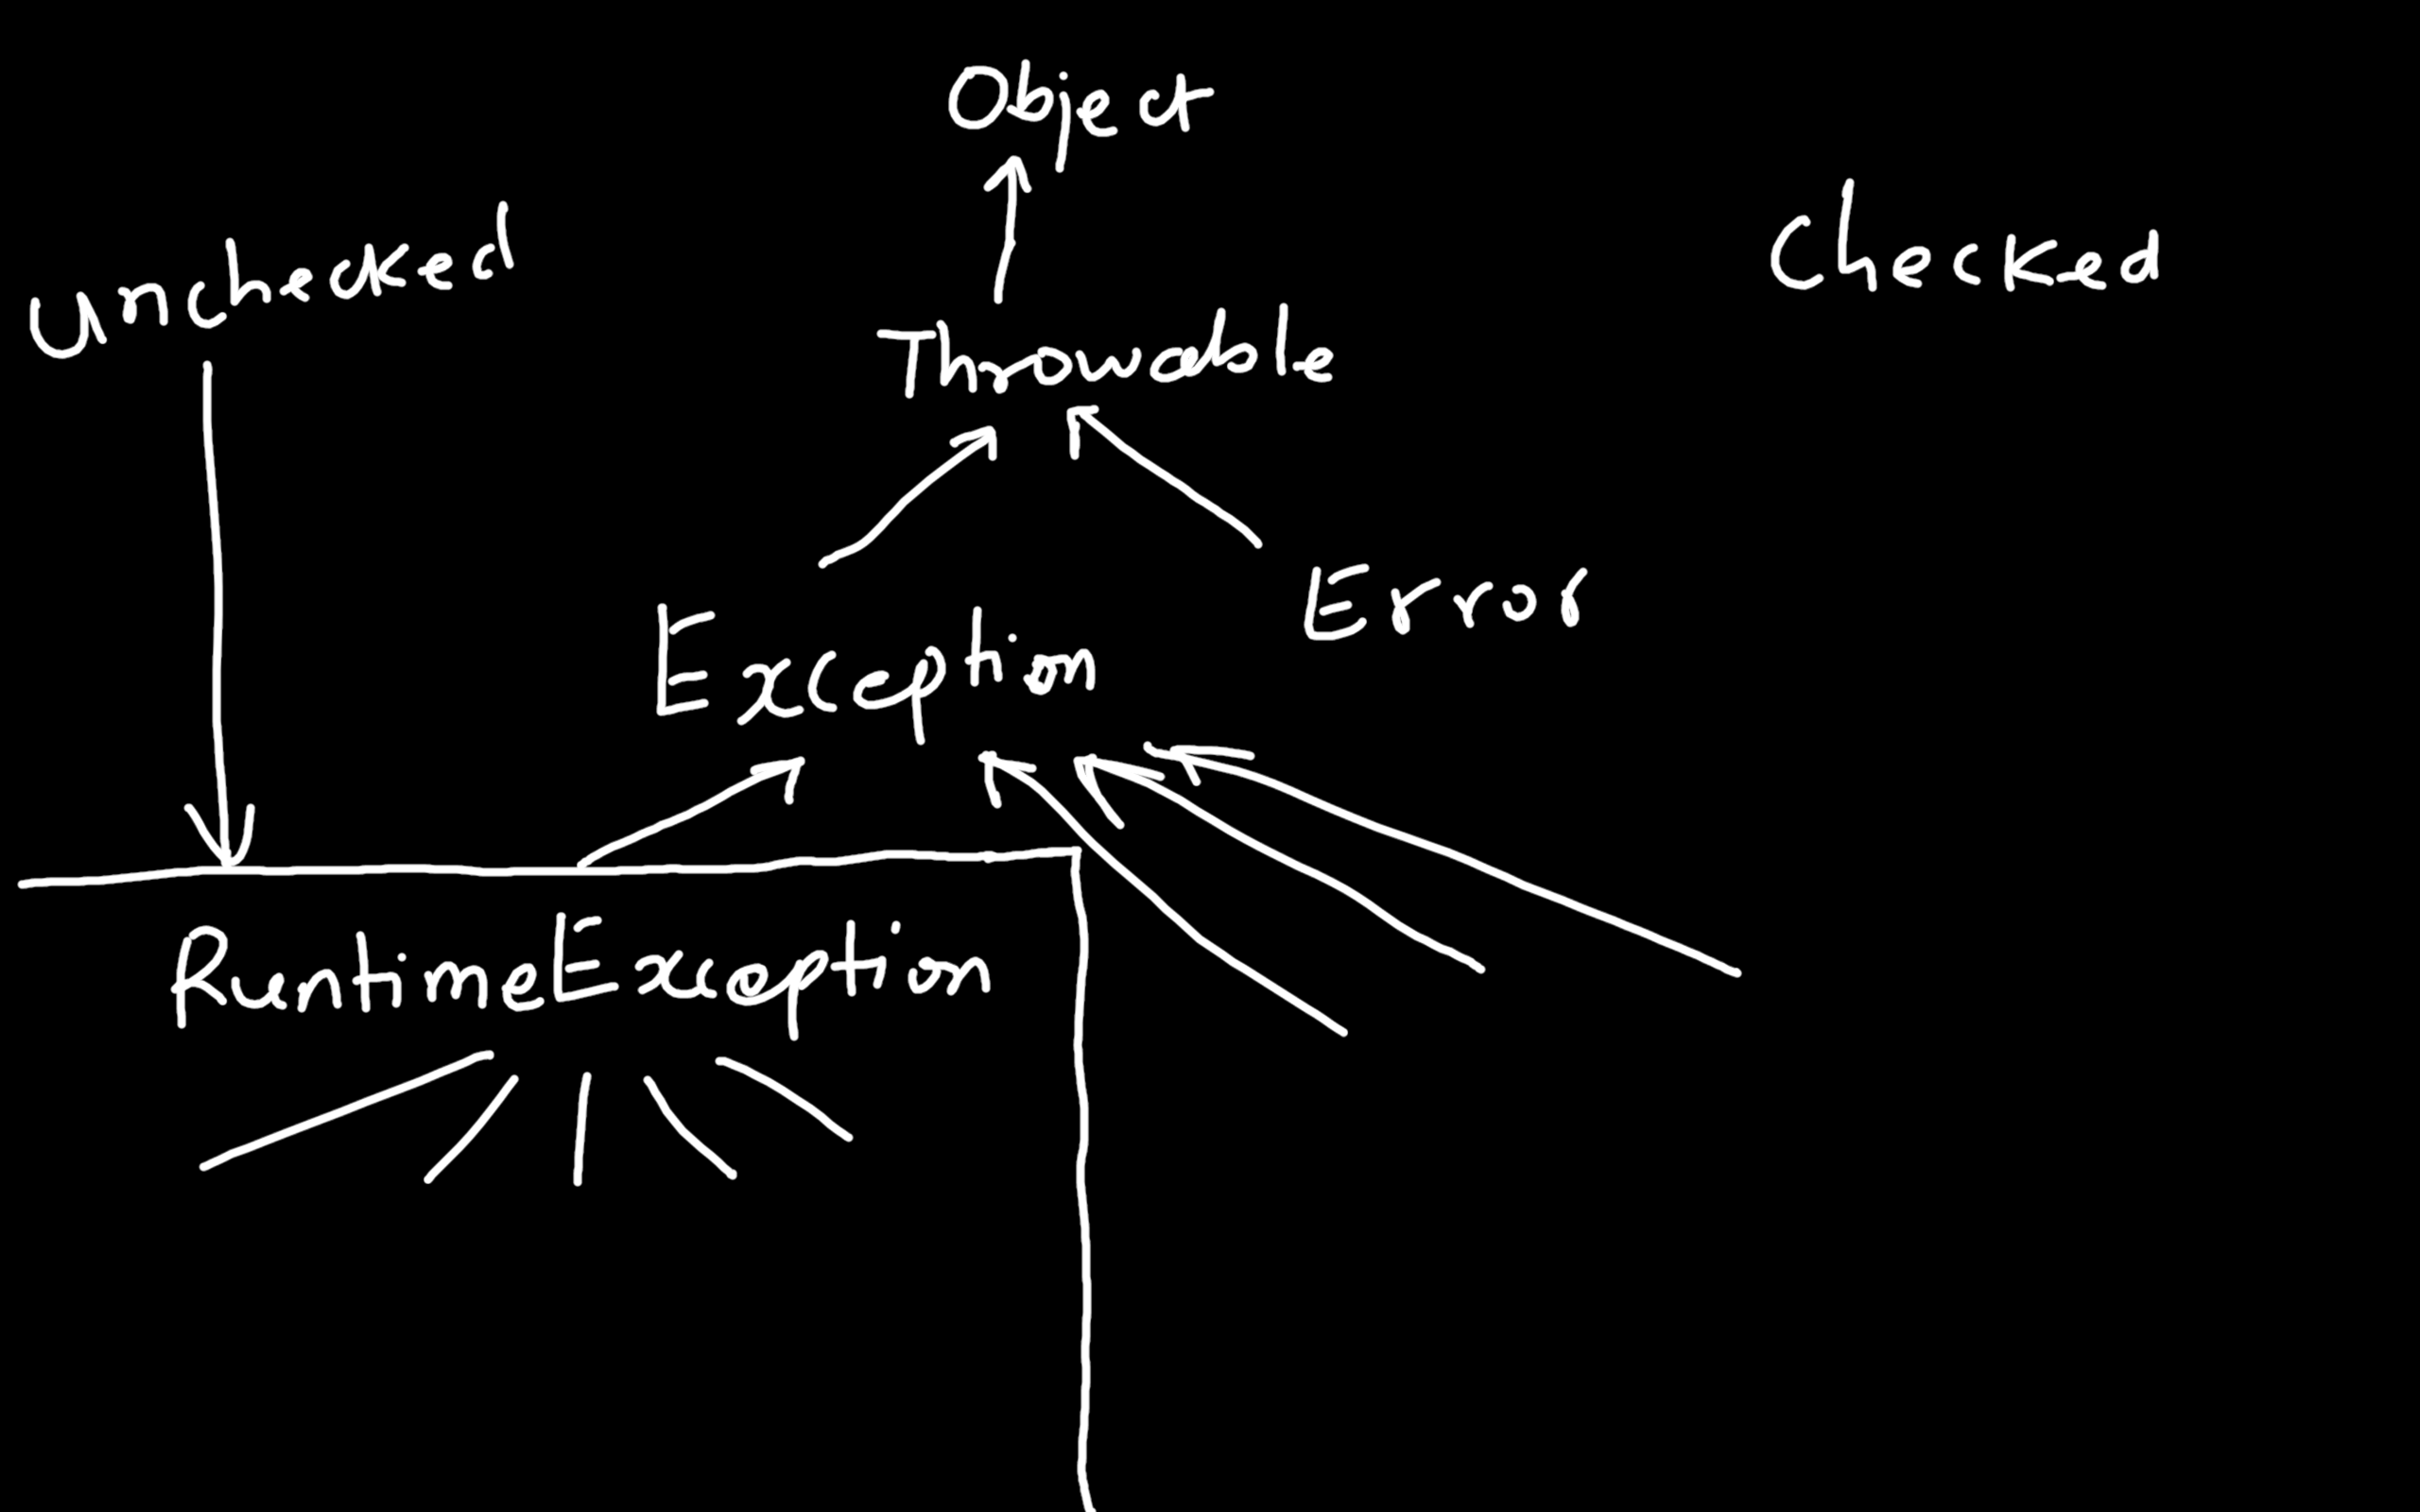 Object
Unchecked
Checked
Throwable
Error
Exception
RuntimeException